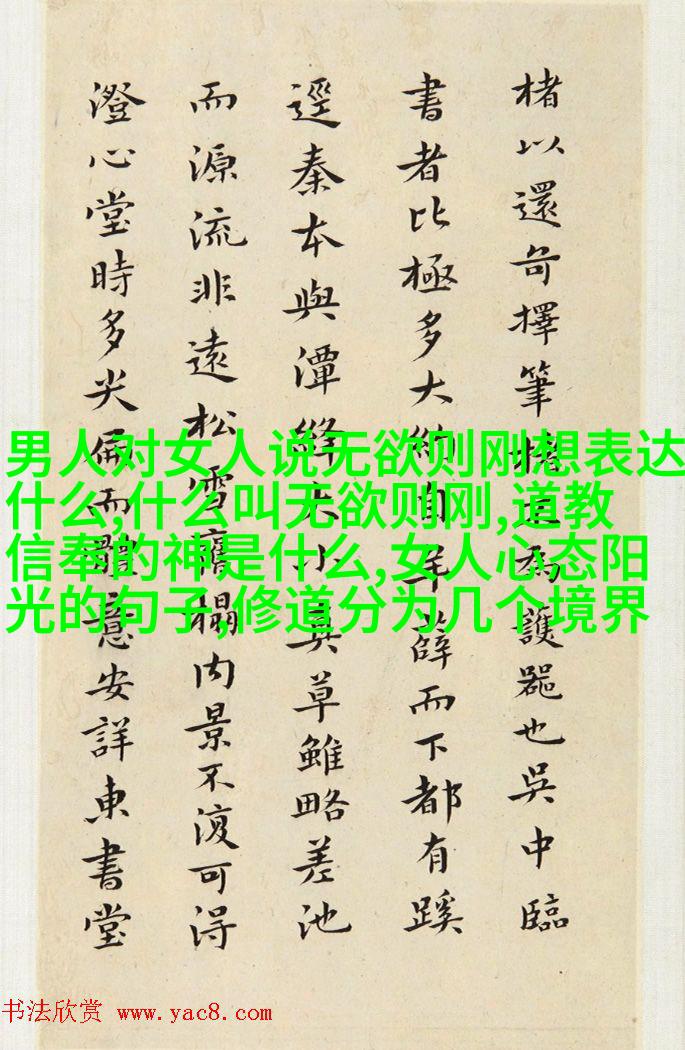 楮以還奇擇筆為護器也吳中臨
書者比極多大約自羊薛而下都有蹊
逕秦本與潭絳夫小真草雖略差池
而源流非遠松雪舊榻内景不復可得
澄心堂時多尖而體意安詳東書堂
男人对女人说无欲则刚想表达
什么,什么叫无欲则刚,道教
信奉的神是什么,女人心态阳
光的句子,修道分为几个境界
书法欣赏 www.yac8.com